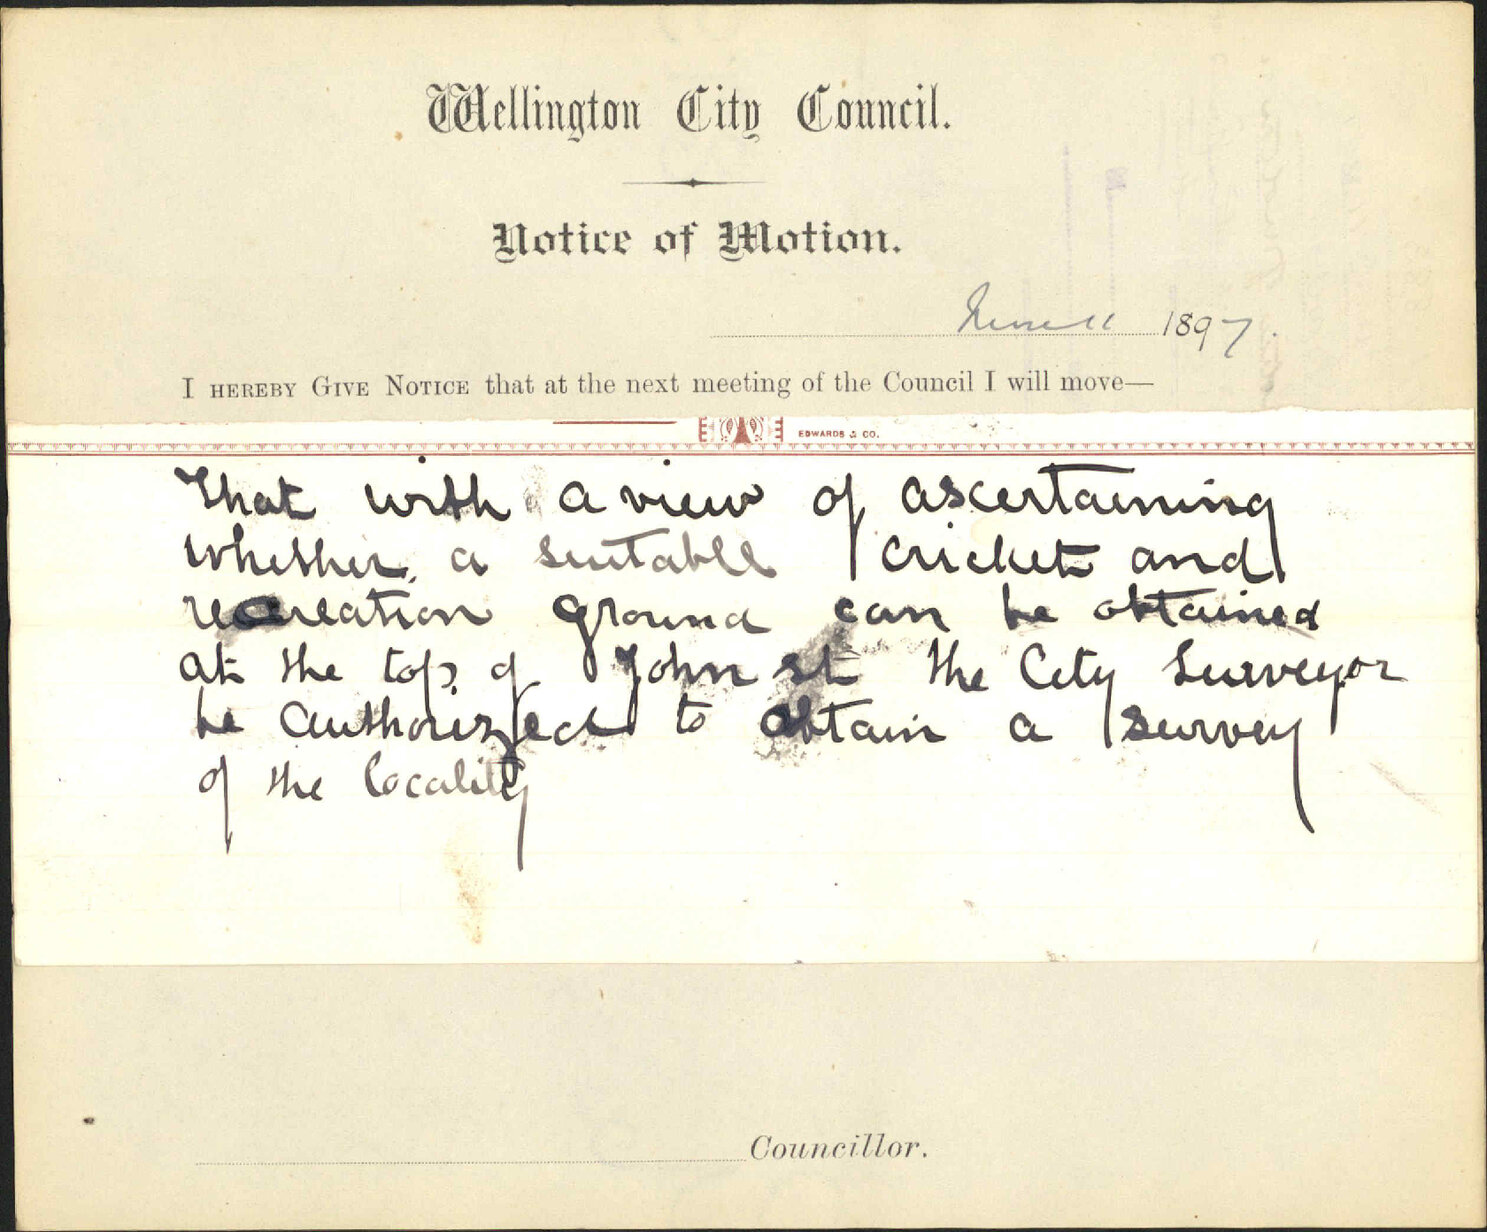 Wellington City Council.
Notice of Motion.
June 11 1897.
I HEREBY GIVE NOTICE that at the next meeting of the Council I will move—
EDWARDS & CO.
That with a view of ascertaining
whether a suitable cricket and
recreation ground can be obtained
at the top of John St the City Surveyor
be authorized to obtain a survey
of the locality
Councillor.